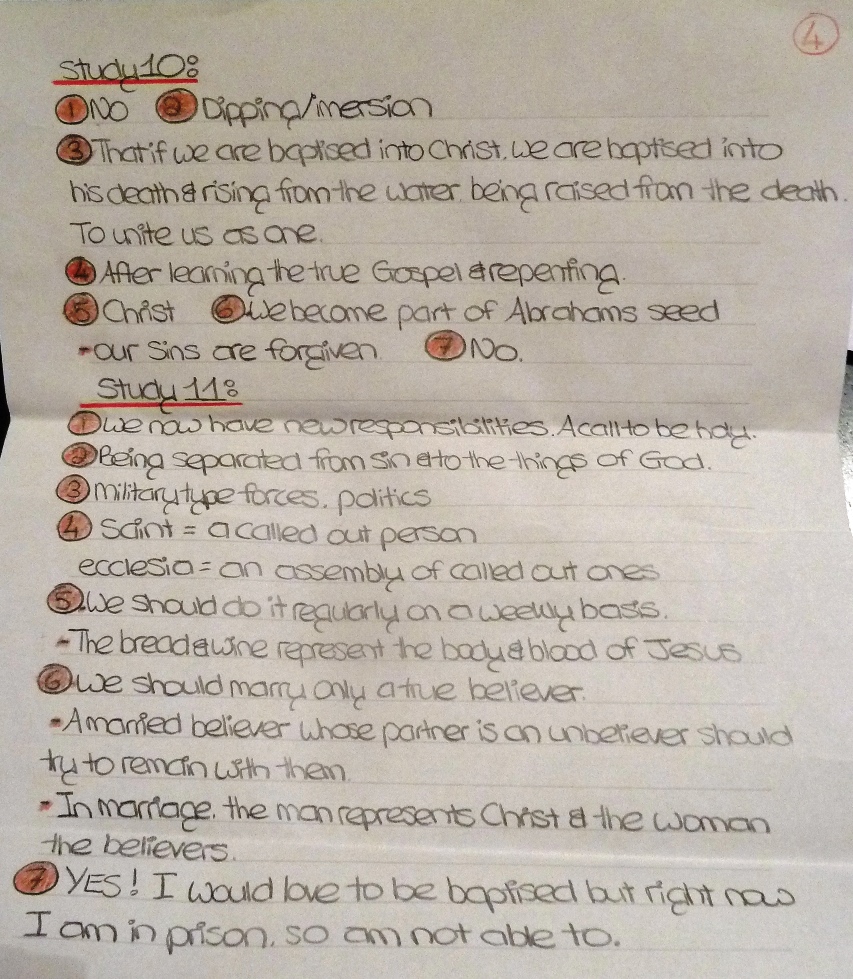 4
Study 10:
1 No 2 Dipping/imersion
3 That if we are baptised into Christ, we are baptised into
his death & rising from the water, being raised from the death.
To unite us as one.
4 After learning the true Gospel & repenting.
5 Christ 6 We become part of Abrahams seed
- our sins are forgiven 7 No.
Study 11:
1 We now have new responsibilities. A call to be holy.
2 Being separated from sin & to the things of God.
3 Military type forces, politics
4 Saint = a called out person
ecclesia = an assembly of called out ones
5 We should do it regularly on a weekly basis.
- The bread & wine represent the body & blood of Jesus
6 We should marry only a true believer.
- A married believer whose partner is an unbeliever should
try to remain with them
- In marriage, the man represents Christ & the woman
the believers.
7 YES! I would love to be baptised but right now
I am in prison, so am not able to.